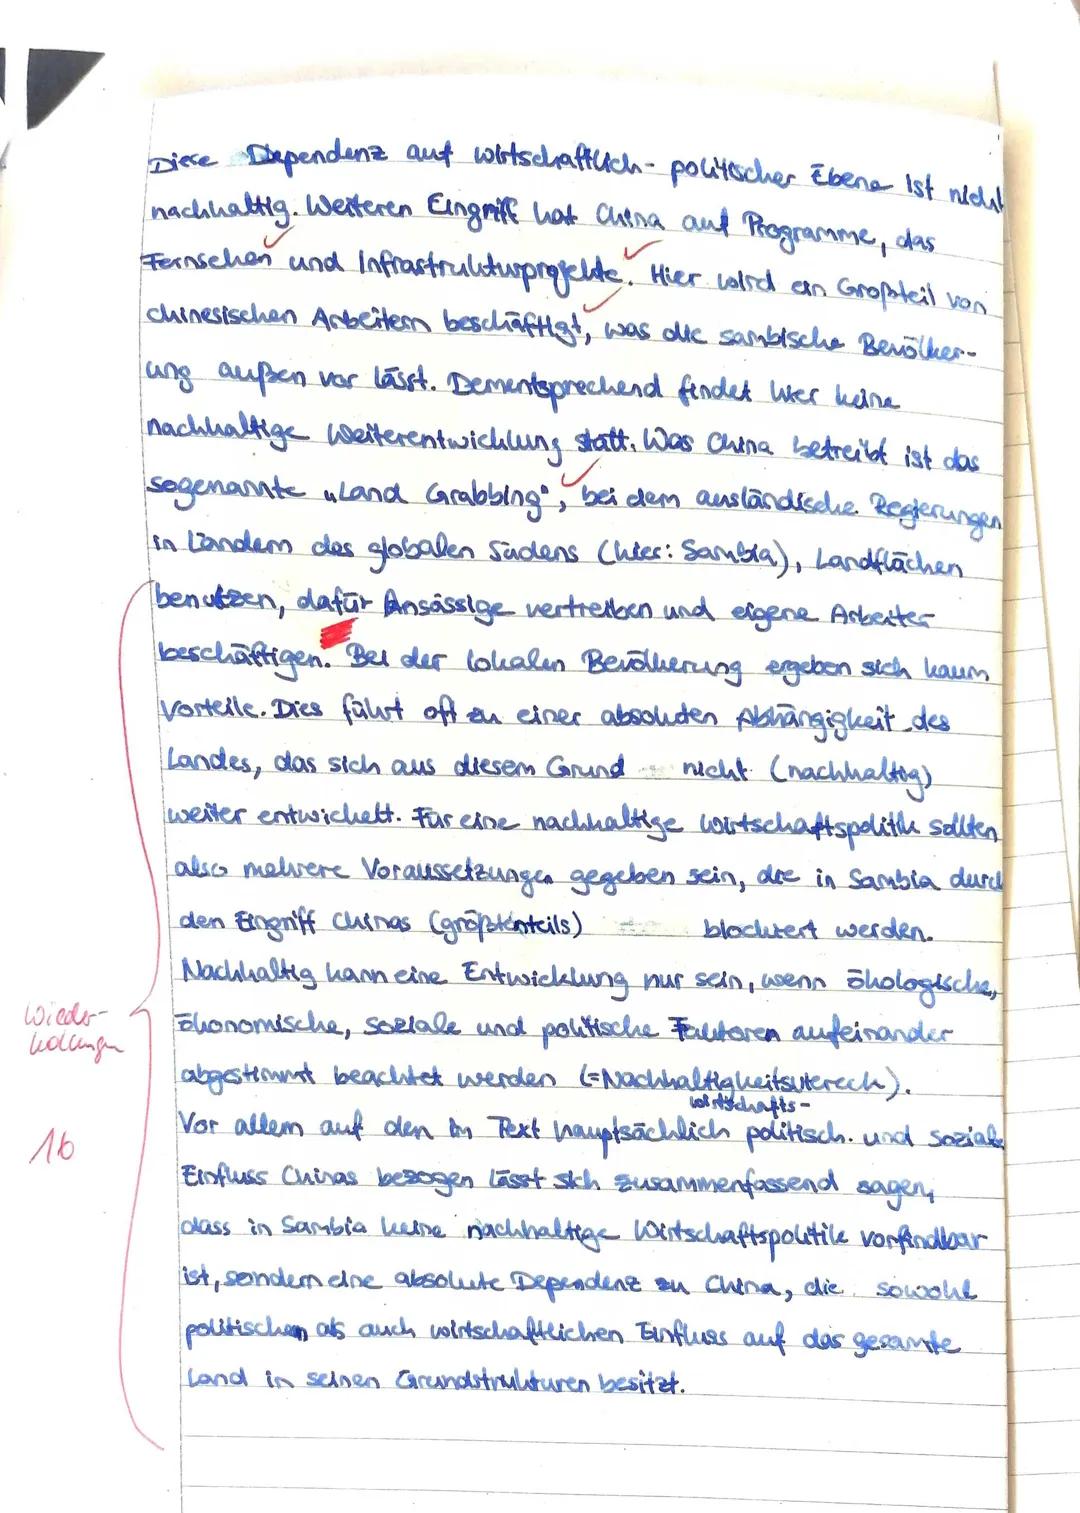 Diese Dependenz auf wirtschaftlich-politischer Ebene ist nicht
nachhaltig. Weiteren Eingriff hat China auf Programme, das
Fernsehen und Infrastrukturprojekte. Hier wird ein Großteil von
chinesischen Arbeitern beschäftigt, was die sambische Bevölker-
ung außen vor lässt. Dementsprechend findet hier keine
nachhaltige Weiterentwicklung statt. Was China betreibt ist das
sogenannte „Land Grabbing", bei dem ausländische Regierungen
in Ländern des globalen Südens (hier: Sambia), Landflächen
benutzen, dafür Ansässige vertreiben und eigene Arbeiter
beschäftigen. Bei der lokalen Bevölkerung ergeben sich kaum
Vorteile. Dies führt oft zu einer absoluten Abhängigkeit des
Landes, das sich aus diesem Grund nicht (nachhaltig)
weiter entwickelt. Für eine nachhaltige Wirtschaftspolitik sollten
also mehrere Voraussetzungen gegeben sein, die in Sambia durch
den Eingriff Chinas (größtenteils) blockiert werden.
Nachhaltig kann eine Entwicklung nur sein, wenn ökologische,
ökonomische, soziale und politische Faktoren aufeinander
abgestimmt beachtet werden (=Nachhaltigkeitsviereck).
wirtschafts-
Vor allem auf den im Text hauptsächlich politisch. und soziale
Einfluss Chinas bezogen lässt sich zusammenfassend sagen,
dass in Sambia keine nachhaltige Wirtschaftspolitik vorfindbar
ist, sondern eine absolute Dependenz zu China, die sowohl
politischen als auch wirtschaftlichen Einfluss auf das gesamte
Land in seinen Grundstrukturen besitzt.
Wieder-
holungen
16